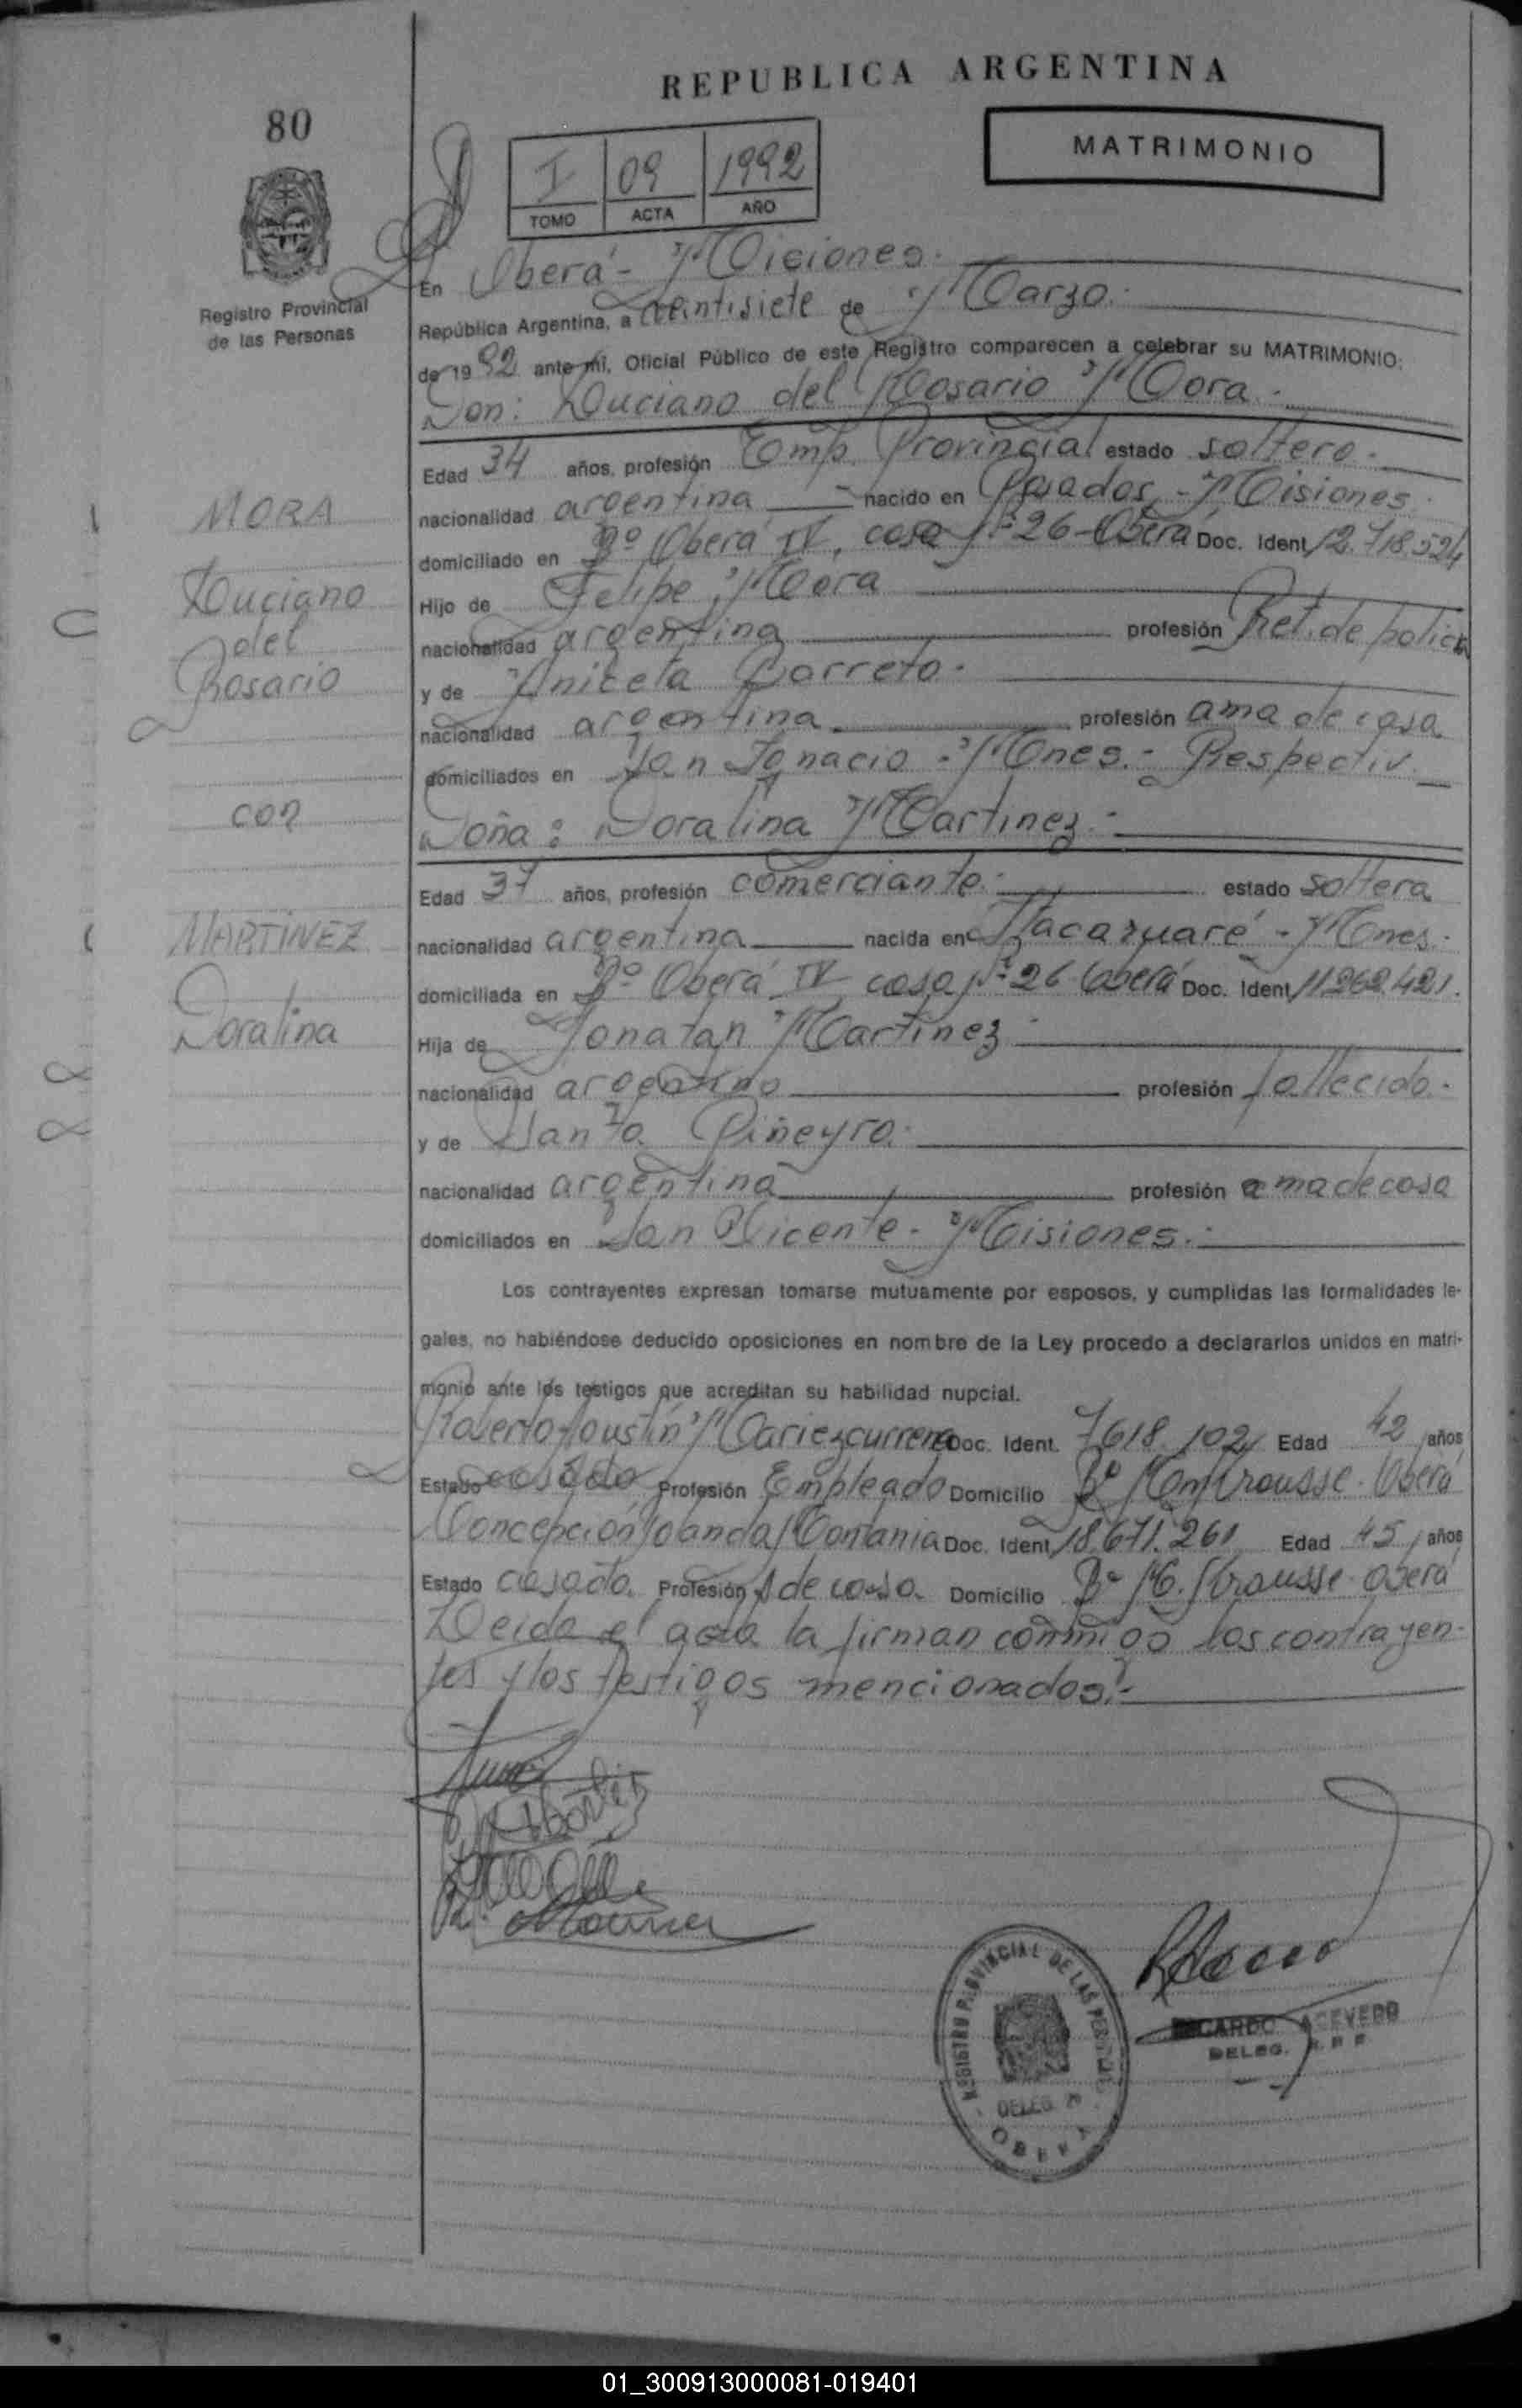 REPUBLICA ARGENTINA
80
MATRIMONIO
I 09 1992
TOMO ACTA AÑO
Registro Provincial
de las Personas
En Oberá - Misiones.
República Argentina, a veintisiete de Marzo.
de 1992 ante mí, Oficial Público de este Registro comparecen a celebrar su MATRIMONIO:
Don: Luciano del Rosario Mora.
Edad 34 años, profesión Emp. Provincial estado soltero.
MORA
nacionalidad argentina nacido en Posadas - Misiones.
domiciliado en Bº Oberá IV, casa Nº 26 - Oberá Doc. Ident. 12.718.524
Luciano
Hijo de Felipe Mora
del
nacionalidad argentina profesión Ret. de policía
Rosario
y de Aniceta Barreto.
nacionalidad argentina profesión ama de casa
domiciliados en San Ignacio - Mnes. - Respectiv.
con
Doña: Doralina Martinez.
Edad 37 años, profesión comerciante. estado soltera
MARTINEZ
nacionalidad argentina nacida en Itacaruaré - Mnes.
domiciliada en Bº Oberá IV casa Nº 26 Oberá Doc. Ident. 11262421.
Doralina
Hija de Jonatan Martinez
nacionalidad argentino profesión fallecido.
y de Santa Piñeyro.
nacionalidad argentina profesión ama de casa
domiciliados en San Vicente - Misiones.
Los contrayentes expresan tomarse mutuamente por esposos, y cumplidas las formalidades le-
gales, no habiéndose deducido oposiciones en nombre de la Ley procedo a declararlos unidos en matri-
monio ante los testigos que acreditan su habilidad nupcial.
Roberto Agustín Mariezcurrena Doc. Ident. 7618.102 Edad 42 años
Estado casado Profesión Empleado Domicilio Bº Krausse. Oberá
Concepción Doc. Ident. 18.671.261 Edad 45 años
Estado casada. Profesión A de casa. Domicilio Bº M. Krausse. Oberá
Leida el acta la firman conmigo los contrayen-
tes y los testigos mencionados.-
REGISTRO PROVINCIAL DE LAS PERSONAS
DELEG.
OBERA
RICARDO ACEVEDO
DELEG. R. P. P.
01_300913000081-019401